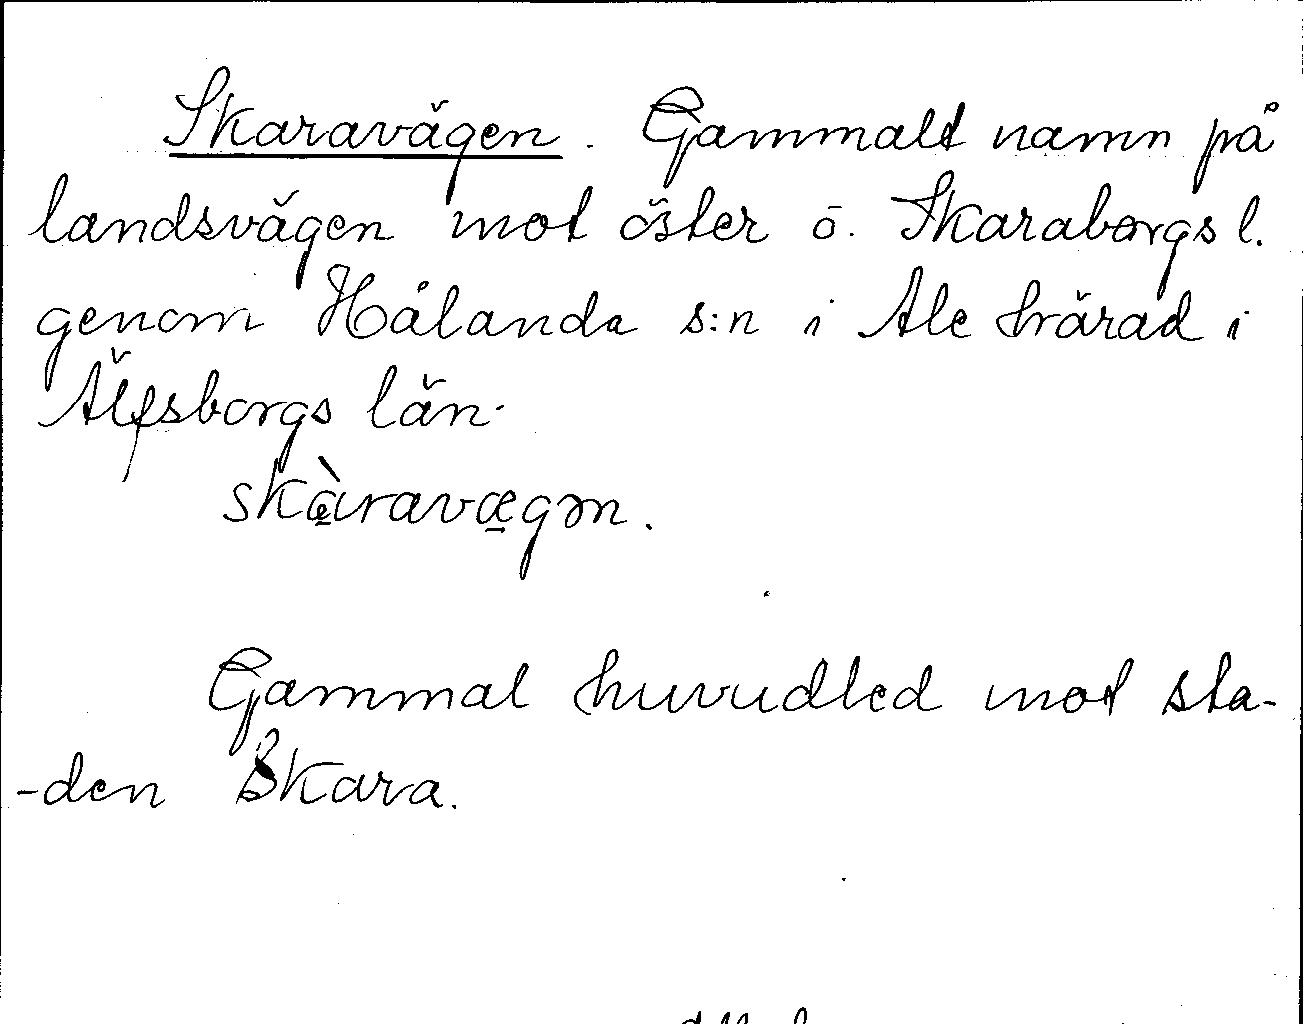 Skaravägen. Gammalt namn på
landsvägen mot öster o. Skaraborgs l.
genom Hålanda s:n i Ale härad i
Älfsborgs län.
skàravægən.
Gammal huvudled mot sta-
-den Skara.